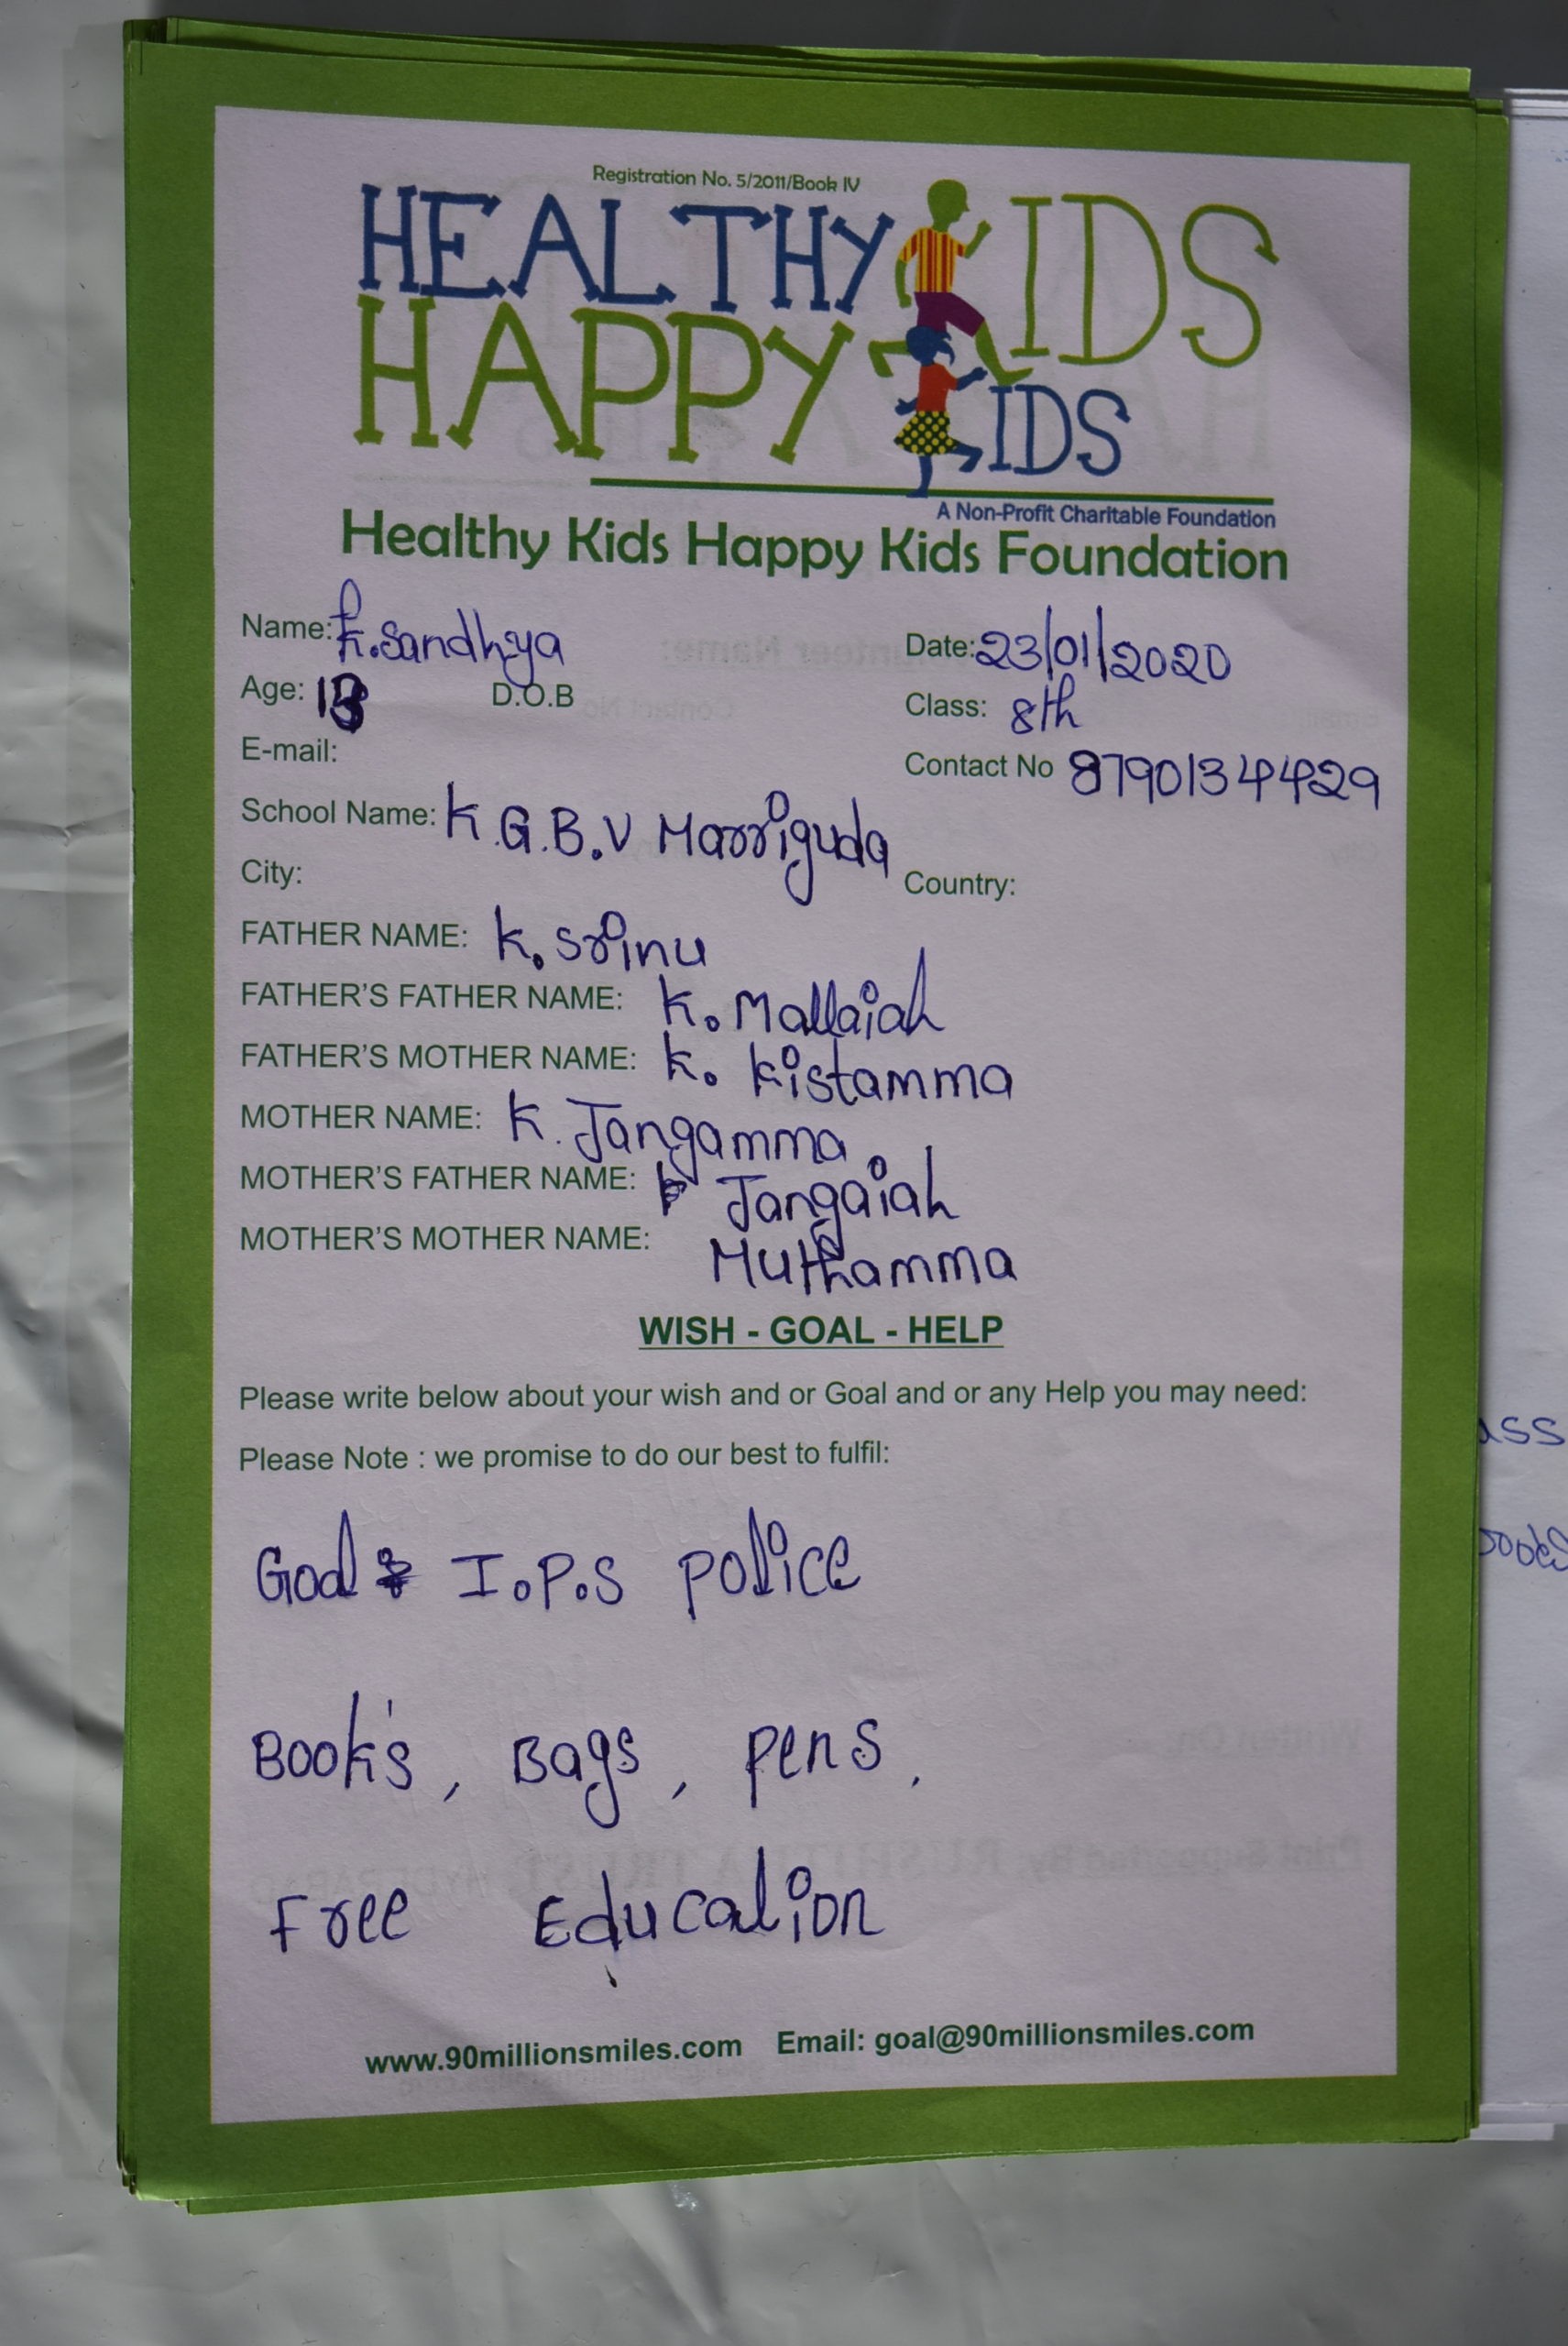 Registration No. 5/2011/Book IV
HEALTHY KIDS
HAPPY KIDS
A Non-Profit Charitable Foundation
Healthy Kids Happy Kids Foundation
Name: K.Sandhya Date: 23/01/2020
Age: 13 D.O.B Class: 8th
E-mail: Contact No 8790134429
School Name: K.G.B.V Marriguda
City: Country:
FATHER NAME: K. Srinu
FATHER'S FATHER NAME: K. Mallaiah
FATHER'S MOTHER NAME: K. Kistamma
MOTHER NAME: K. Jangamma
MOTHER'S FATHER NAME: Jangaiah
MOTHER'S MOTHER NAME: Muthamma
WISH - GOAL - HELP
Please write below about your wish and or Goal and or any Help you may need:
Please Note : we promise to do our best to fulfil:
Goal I.P.S police
Book's, Bags, pens,
Free Education
www.90millionsmiles.com Email: goal@90millionsmiles.com